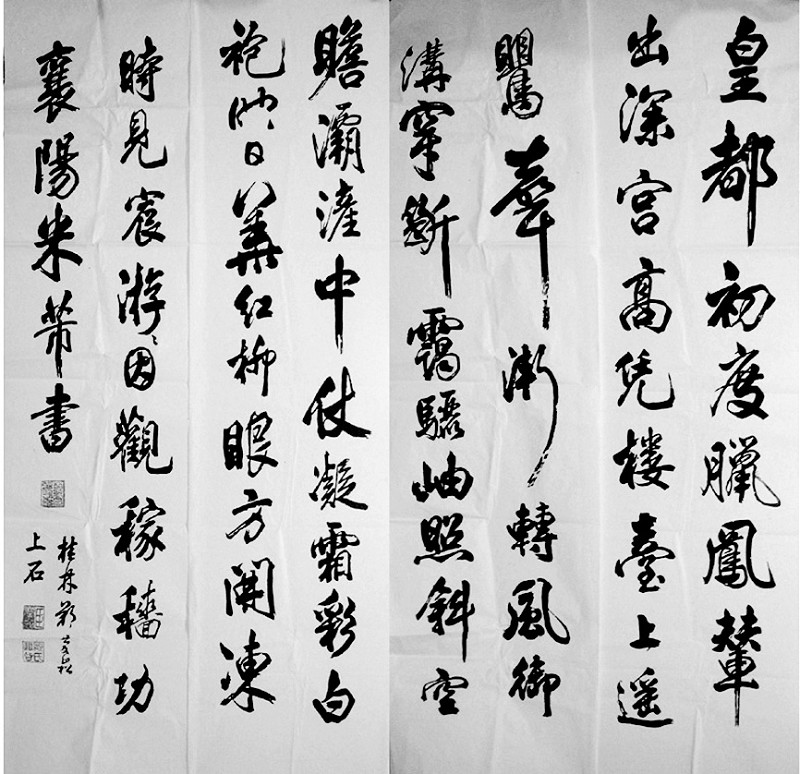 皇都初度臘鳳輦
出深宮高凭樓臺上遥
鸎聲漸轉風御
溝穿斷靄驪岫照斜空
瞻灞滻中仗凝霜彩白
袍映日華紅柳眼方開凍
時見宸游因觀稼穡功
襄陽米芾書
桂林
上石